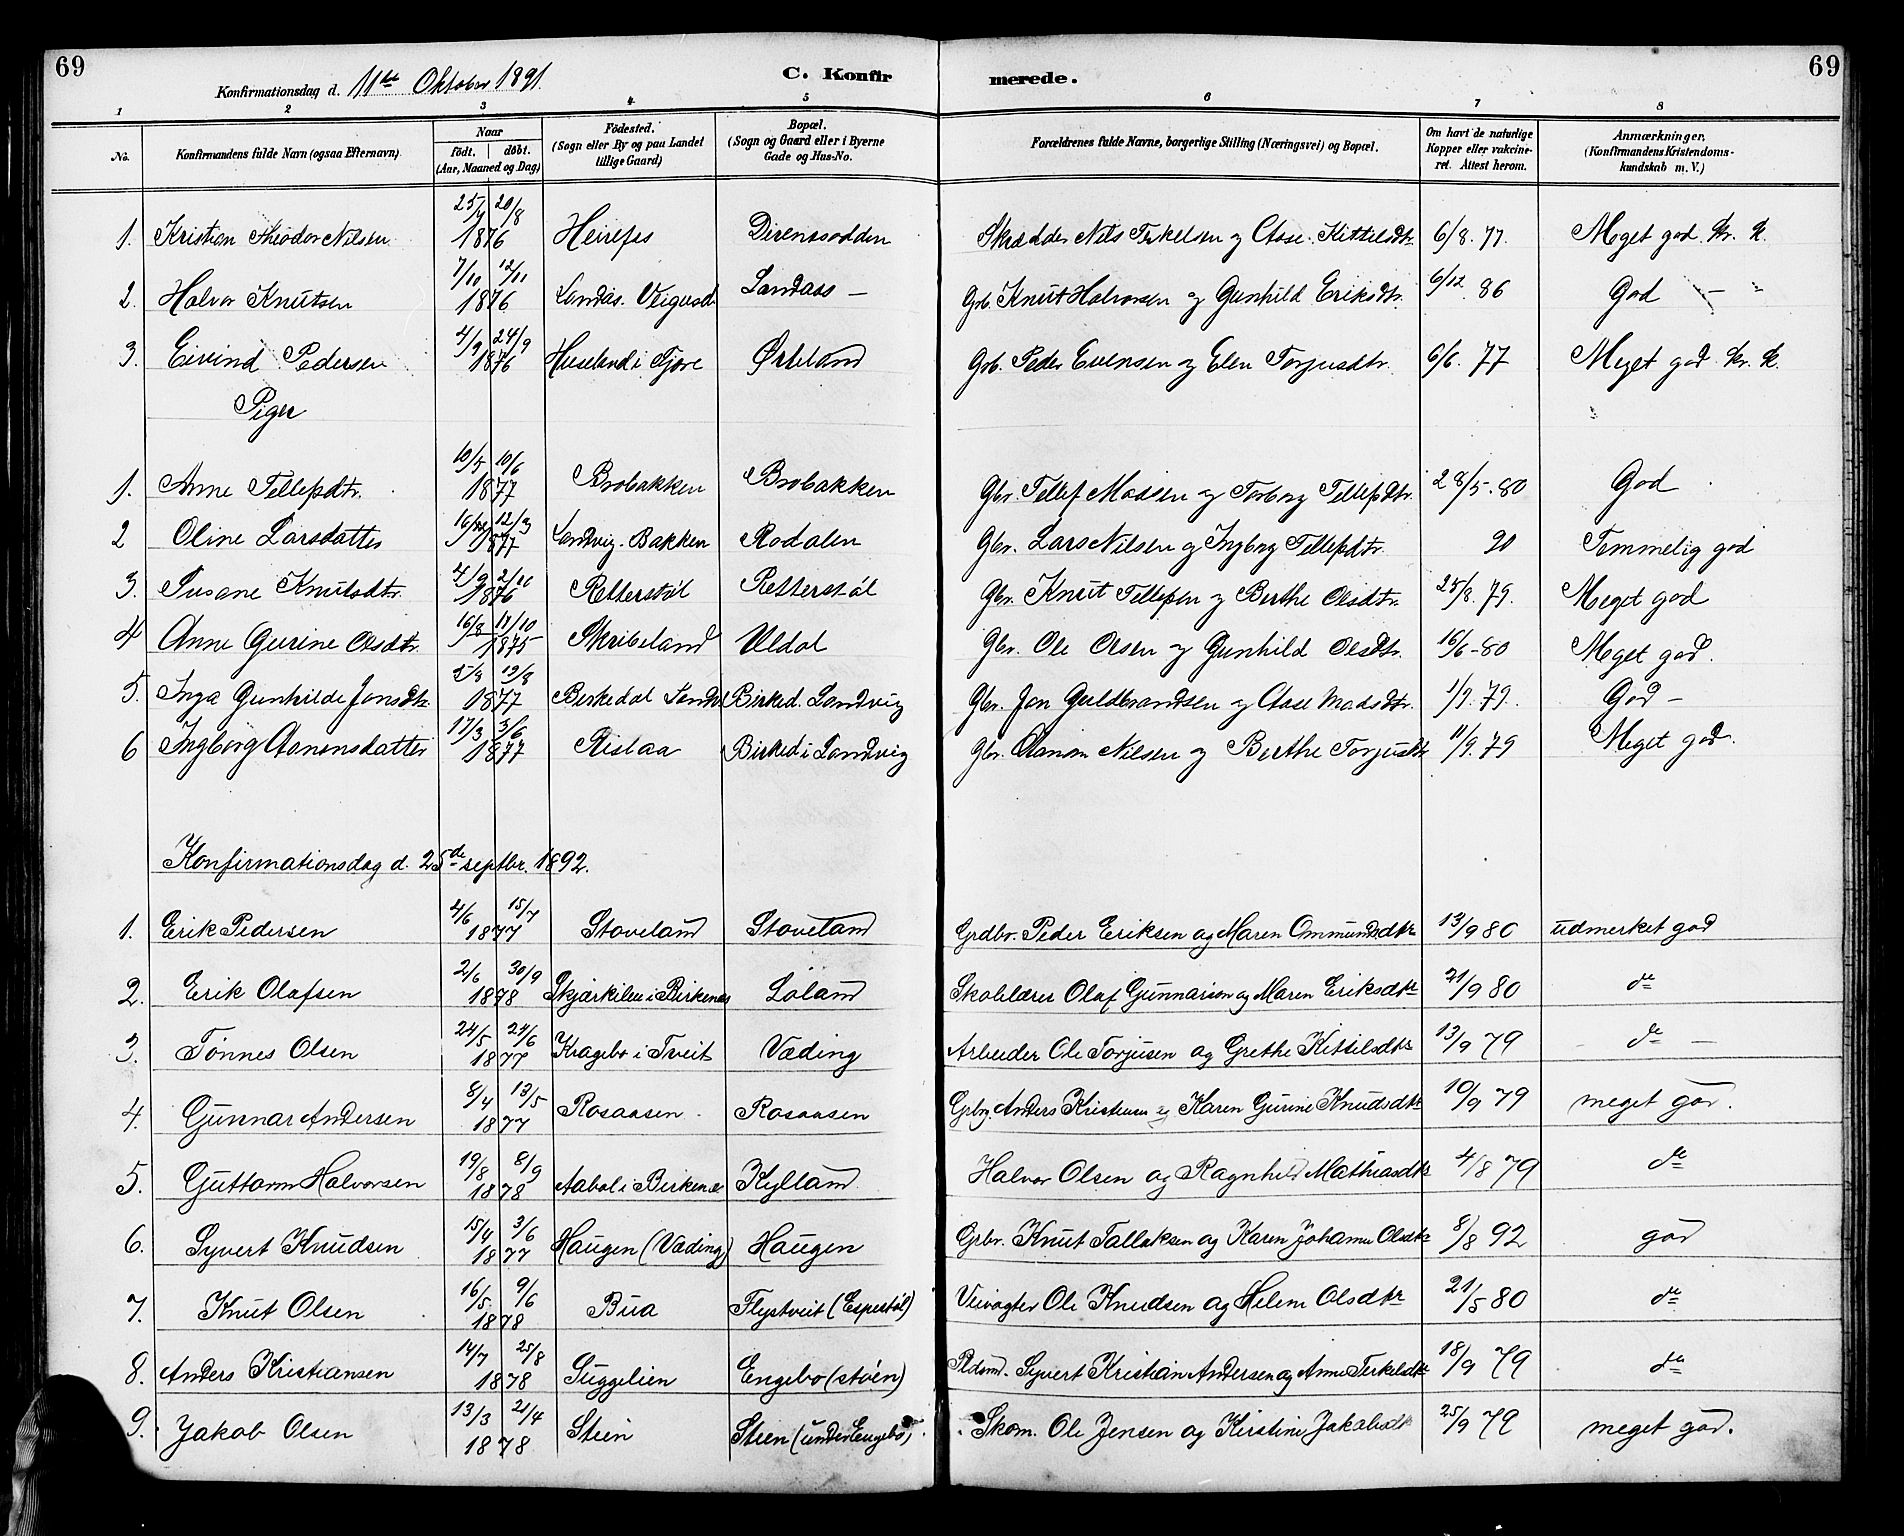 69
Konfirmationsdag d. 11te Oktober 1891.
C. Konfir
merede.
69
1 2 3 4 5 6 7 8
No. Konfirmandens fulde Navn (ogsaa Efternavn). Naar født. døbt. (Aar, Maaned og Dag) Fødested. (Sogn eller By og paa Landet tillige Gaard) Bopæl. (Sogn og Gaard eller i Byerne Gade og Hus-No. Forældrenes fulde Navne, borgerlige Stilling (Næringsvei) og Bopæl. Om havt de naturlige Kopper eller vakcineret. Attest herom. Anmærkninger, (Konfirmandens Kristendomskundskab m. V.)
1. Kristian Theodor Nilsen 25/4 20/8 1876 Heirefjs Direnesodden Skrædder Nils Terkelsen og Aase Kittelsdtr. 6/8. 77. Meget god. Kr. K.
2. Halvor Knutsen 7/10 12/11 1876 Landås. Veigusd Landaas – Grb. Knut Halvorsen og Gunhild Eriksdtr. 6/12 86 God – "
3. Eivind Pedersen 4/9 24/9 1876 Huseland i Fjære Ørteland Grb. Peder Evensen og Elen Torjusdtr. 6/6. 77 Meget god Kr. K.
Piger
1. Anne Tellefsdtr. 10/5 10/6 1877 Brobakken Brobakken Gbr. Tellef Madsen og Torborg Tellefsdtr. 28/5. 80 God
2 Oline Larsdatter 12/3 1877 Landvig. Bakken Rodalen Gbr. Lars Nilsen og Ingborg Tellefsdtr. 90 Temmelig god
3. Susane Knutsdtr. 4/9 2/10 1876 Retterstøl Retterstøl Gbr. Knut Tellefsen og Berthe Olsdtr. 25/8. 79. Meget god
4 Anne Gurine Olsdtr. 16/8 11/10 1875 Skribeland Uldal Gbr. Ole Olsen og Gunhild Olsdtr. 16/6 - 80 Meget god.
5. Inga Gunhilde Jonsdtr. 5/8 12/8 1877 Birkedal Landv Birked. Landvig Gbr. Jon Guldbrandsen og Aase Madsdtr. 1/9. 79. God –
6 Ingborg Aanonsdatter 17/3 3/6 1877 Rislaa Birked i Landvig Gbr. Aanon Nilsen og Berthe Torjusdtr 11/9. 79 Meget god.
Konfirmationsdag d. 25de septbr. 1892.
1. Erik Pedersen 4/6 15/7 1877 Stoveland Stoveland Grdbr. Peder Eriksen og Maren Ommundsdtr 13/9 80 udmerket god
2. Erik Olafsen 2/6 30/9 1878 Skjærkilen i Birkenes Løland Skolelærer Olaf Gunnarsen og Maren Eriksdtr 21/9 80 do
3. Tønnes Olsen 24/5 24/6 1877 Kragebo i Tveit Væding Arbeider Ole Torjusen og Grethe Kittilsdtr 13/9 79 – do –
4. Gunnar Andersen 8/4 13/5 1877 Rosaasen Rosaasen Grbr. Anders Kristensen og Karen Gurine Knudsdtr 10/9 79 meget god.
5. Guttorm Halvorsen 19/8 8/9 1878 Aabol i Birkenes Kylland Halvor Olsen og Ragnhild Mathiasdtr 4/8 79 do
6. Syvert Knudsen 15/4 3/6 1877 Haugen (Væding) Haugen Grbr. Knut Tallaksen og Karen Johanne Olsdtr 8/8 92 god
7. Knut Olsen 16/5 9/6 1878 Bua Flystveit (Espestøl) Veivogter Ole Knudsen og Helene Olsdtr 21/5 80 do
8. Anders Kristiansen 14/7 25/8 1878 Suggelien Engebo (støen) Pldsmd. Syvert Kristian Andersen og Anne Terkelsdtr 18/9 79 do
9. Jakob Olsen 13/3 21/4 1878 Steen Steen (under Engebo) Skom. Ole Jensen og Kirstine Jakobsdtr 25/9 79 meget god.